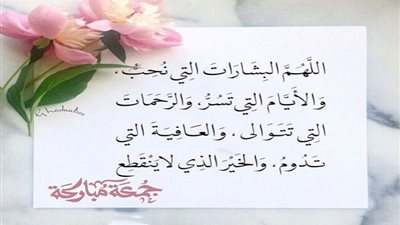 اللَّهُمَّ البِشَارَاتَ التِي نُحِبُّ،
وَالأَيَّامَ التِي تَسُرُّ، وَالرَّحَمَاتَ
التِي تَتَوَالَى، وَالعَافِيَةَ التِي
تَدُومُ، وَالخَيْرَ الذِي لاَيَنْقَطِع
جمعة مباركة